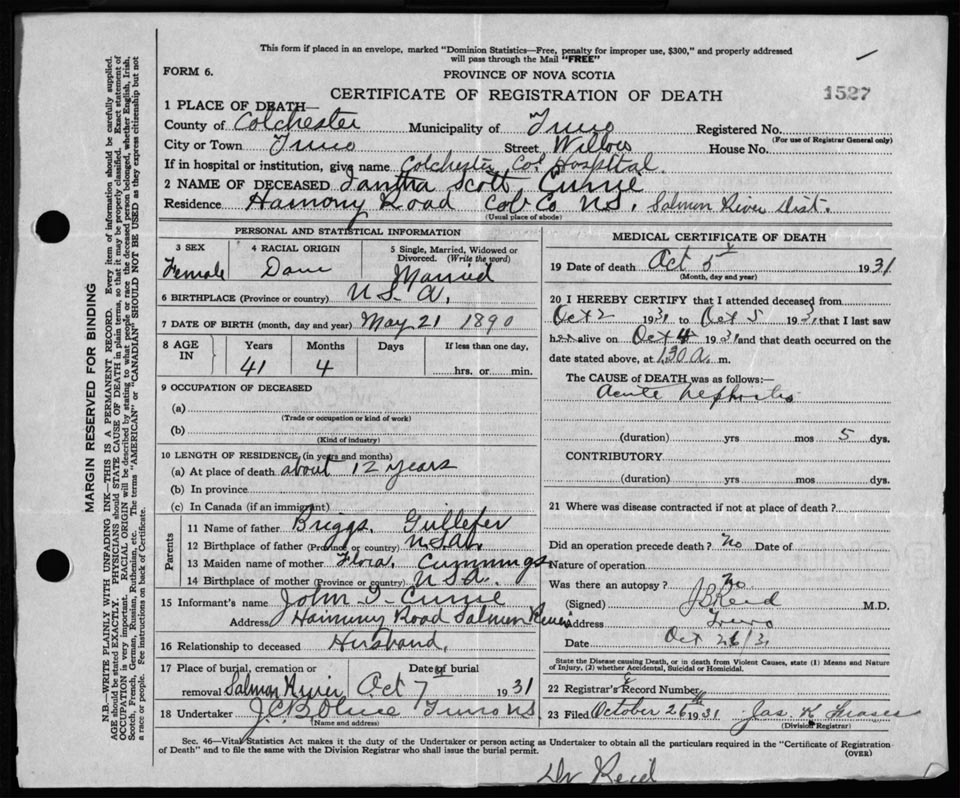 This form if placed in an envelope, marked "Dominion Statistics—Free, penalty for improper use, $300," and properly addressed
will pass through the Mail "FREE"
FORM 6.
PROVINCE OF NOVA SCOTIA
CERTIFICATE OF REGISTRATION OF DEATH
1527
1 PLACE OF DEATH—
County of Colchester Municipality of Truro Registered No.
(For use of Registrar General only)
City or Town Truro Street Willow House No.
If in hospital or institution, give name Colchester Co. Hospital.
2 NAME OF DECEASED Scott Currie
Residence Harmony Road Col. Co. N.S. Salmon River Dist.
(Usual place of abode)
PERSONAL AND STATISTICAL INFORMATION
3 SEX 4 RACIAL ORIGIN 5 Single, Married, Widowed or Divorced. (Write the word)
Female Married
6 BIRTHPLACE (Province or country) U.S.A.
7 DATE OF BIRTH (month, day and year) May 21 1890
8 AGE IN Years Months Days If less than one day,
41 4 hrs. or min.
9 OCCUPATION OF DECEASED
(a)
(Trade or occupation or kind of work)
(b)
(Kind of industry)
10 LENGTH OF RESIDENCE (in years and months)
(a) At place of death about 12 years
(b) In province
(c) In Canada (if an immigrant)
Parents
11 Name of father Briggs
12 Birthplace of father (Province or country) U.S.A.
13 Maiden name of mother Flora Cummings
14 Birthplace of mother (Province or country) U.S.A.
15 Informant's name John Currie
Address Harmony Road Salmon River
16 Relationship to deceased Husband
17 Place of burial, cremation or removal Salmon River Date of burial Oct 7 1931
18 Undertaker Truro N.S.
(Name and address)
MEDICAL CERTIFICATE OF DEATH
19 Date of death Oct 5 1931
(Month, day and year)
20 I HEREBY CERTIFY that I attended deceased from
Oct 2 1931 to Oct 5 1931 that I last saw
her alive on Oct 4 1931 and that death occurred on the
date stated above, at 1.30 a. m.
The CAUSE of DEATH was as follows:—
Acute Nephritis
(duration) yrs mos 5 dys.
CONTRIBUTORY
(duration) yrs mos dys.
21 Where was disease contracted if not at place of death?
Did an operation precede death? No Date of
Nature of operation
Was there an autopsy? No
(Signed) J B Reid M.D.
Address Truro
Date Oct 26/31
State the Disease causing Death, or in death from Violent Causes, state (1) Means and Nature of Injury, (2) whether Accidental, Suicidal or Homicidal.
22 Registrar's Record Number
23 Filed October 26 1931 Jas. K. Fraser
(Division Registrar)
Sec. 46—Vital Statistics Act makes it the duty of the Undertaker or person acting as Undertaker to obtain all the particulars required in the "Certificate of Registration
of Death" and to file the same with the Division Registrar who shall issue the burial permit.
(OVER)
Dr Reid
MARGIN RESERVED FOR BINDING
N.B.—WRITE PLAINLY WITH UNFADING INK—THIS IS A PERMANENT RECORD. Every item of information should be carefully supplied.
AGE should be stated EXACTLY. PHYSICIANS should STATE CAUSE OF DEATH in plain terms, so that it may be properly classified. Exact statement of
OCCUPATION is very important. RACIAL ORIGIN will be described by stating to what people or race the deceased person belonged, whether English, Irish,
Scotch, French, German, Russian, Ruthenian, etc. The terms "AMERICAN" or "CANADIAN" SHOULD NOT BE USED as they express citizenship but not
a race or people. See instructions on back of Certificate.